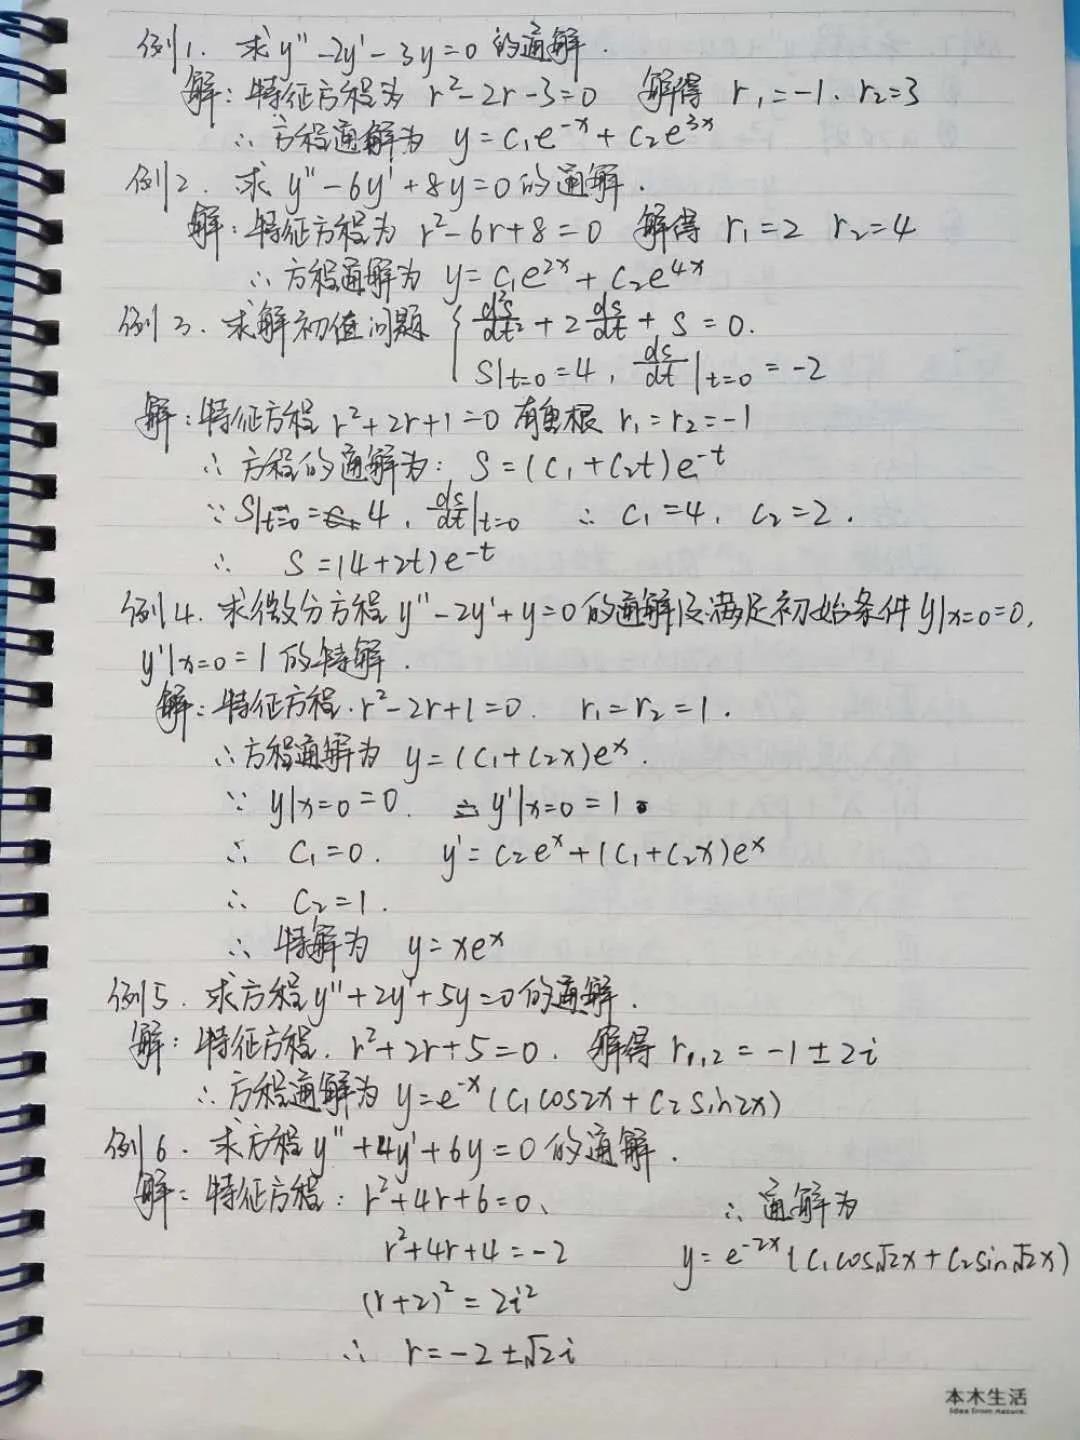 例1. 求y''-2y'-3y=0 的通解.
解:特征方程为 r²-2r-3=0 解得 r₁=-1. r₂=3
∴方程通解为 y=C₁e⁻ˣ+C₂e³ˣ
例2. 求 y''-6y'+8y=0的通解.
解:特征方程为 r²-6r+8=0 解得 r₁=2 r₂=4
∴方程通解为 y=C₁e²ˣ+C₂e⁴ˣ
例3. 求解初值问题 { d²s/dt²+2ds/dt+S=0.
S|t=0=4, ds/dt|t=0=-2
解:特征方程r²+2r+1=0 有重根 r₁=r₂=-1
∴方程的通解为: S=(C₁+C₂t)e⁻ᵗ
∵S|t=0=4, ds/dt|t=0 ∴ C₁=4, C₂=2.
∴ S=(4+2t)e⁻ᵗ
例4. 求微分方程y''-2y'+y=0的通解及满足初始条件y|x=0=0,
y'|x=0=1的特解.
解:特征方程.r²-2r+1=0. r₁=r₂=1.
∴方程通解为 y=(C₁+C₂x)eˣ.
∵ y|x=0=0. y'|x=0=1
∴ C₁=0. y'=C₂eˣ+(C₁+C₂x)eˣ
∴ C₂=1.
∴ 特解为 y=xeˣ
例5. 求方程y''+2y'+5y=0的通解.
解:特征方程. r²+2r+5=0. 解得 r₁,₂=-1±2i
∴方程通解为y=e⁻ˣ(C₁cos2x+C₂sin2x)
例6. 求方程y''+4y'+6y=0的通解.
解:特征方程:r²+4r+6=0、
r²+4r+4=-2
(r+2)²=2i²
∴ r=-2±√2i
∴通解为
y=e⁻²ˣ(C₁cos√2x+C₂sin√2x)
本木生活
Idea from nature.